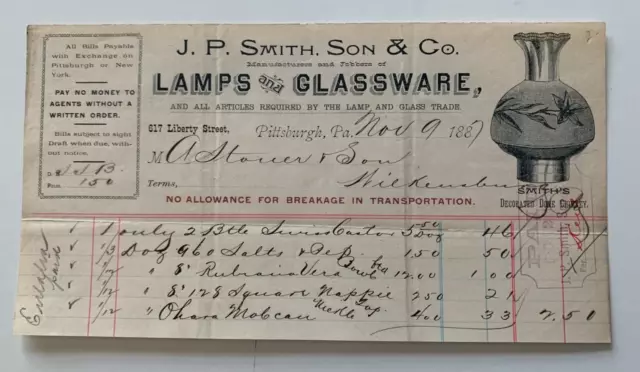 All Bills Payable
with Exchange on
Pittsburgh or New
York.
PAY NO MONEY TO
AGENTS WITHOUT A
WRITTEN ORDER.
Bills subject to sight
Draft when due, with-
out notice.
150
J. P. SMITH, SON & CO.
Manufacturers and Jobbers of
LAMPS and GLASSWARE,
AND ALL ARTICLES REQUIRED BY THE LAMP AND GLASS TRADE
617 Liberty Street, Pittsburgh, Pa. Nov 9 1887
M A Stoner & Son
Terms, Wilkensburg
NO ALLOWANCE FOR BREAKAGE IN TRANSPORTATION.
SMITH'S
DECORATED DOME CHIMNEY.
1 only 2 Btle Castor 5 50 Doz 46
1/3 Doz 960 Salts & Pep. 150 50
1/12 " 8" Rubiana Vera Bowl 12.00 1 00
1/12 " 8" 128 Square Nappie 2 50 21
1/12 " Ohara Mobcan Nickle Cap. 4 00 33 2.50